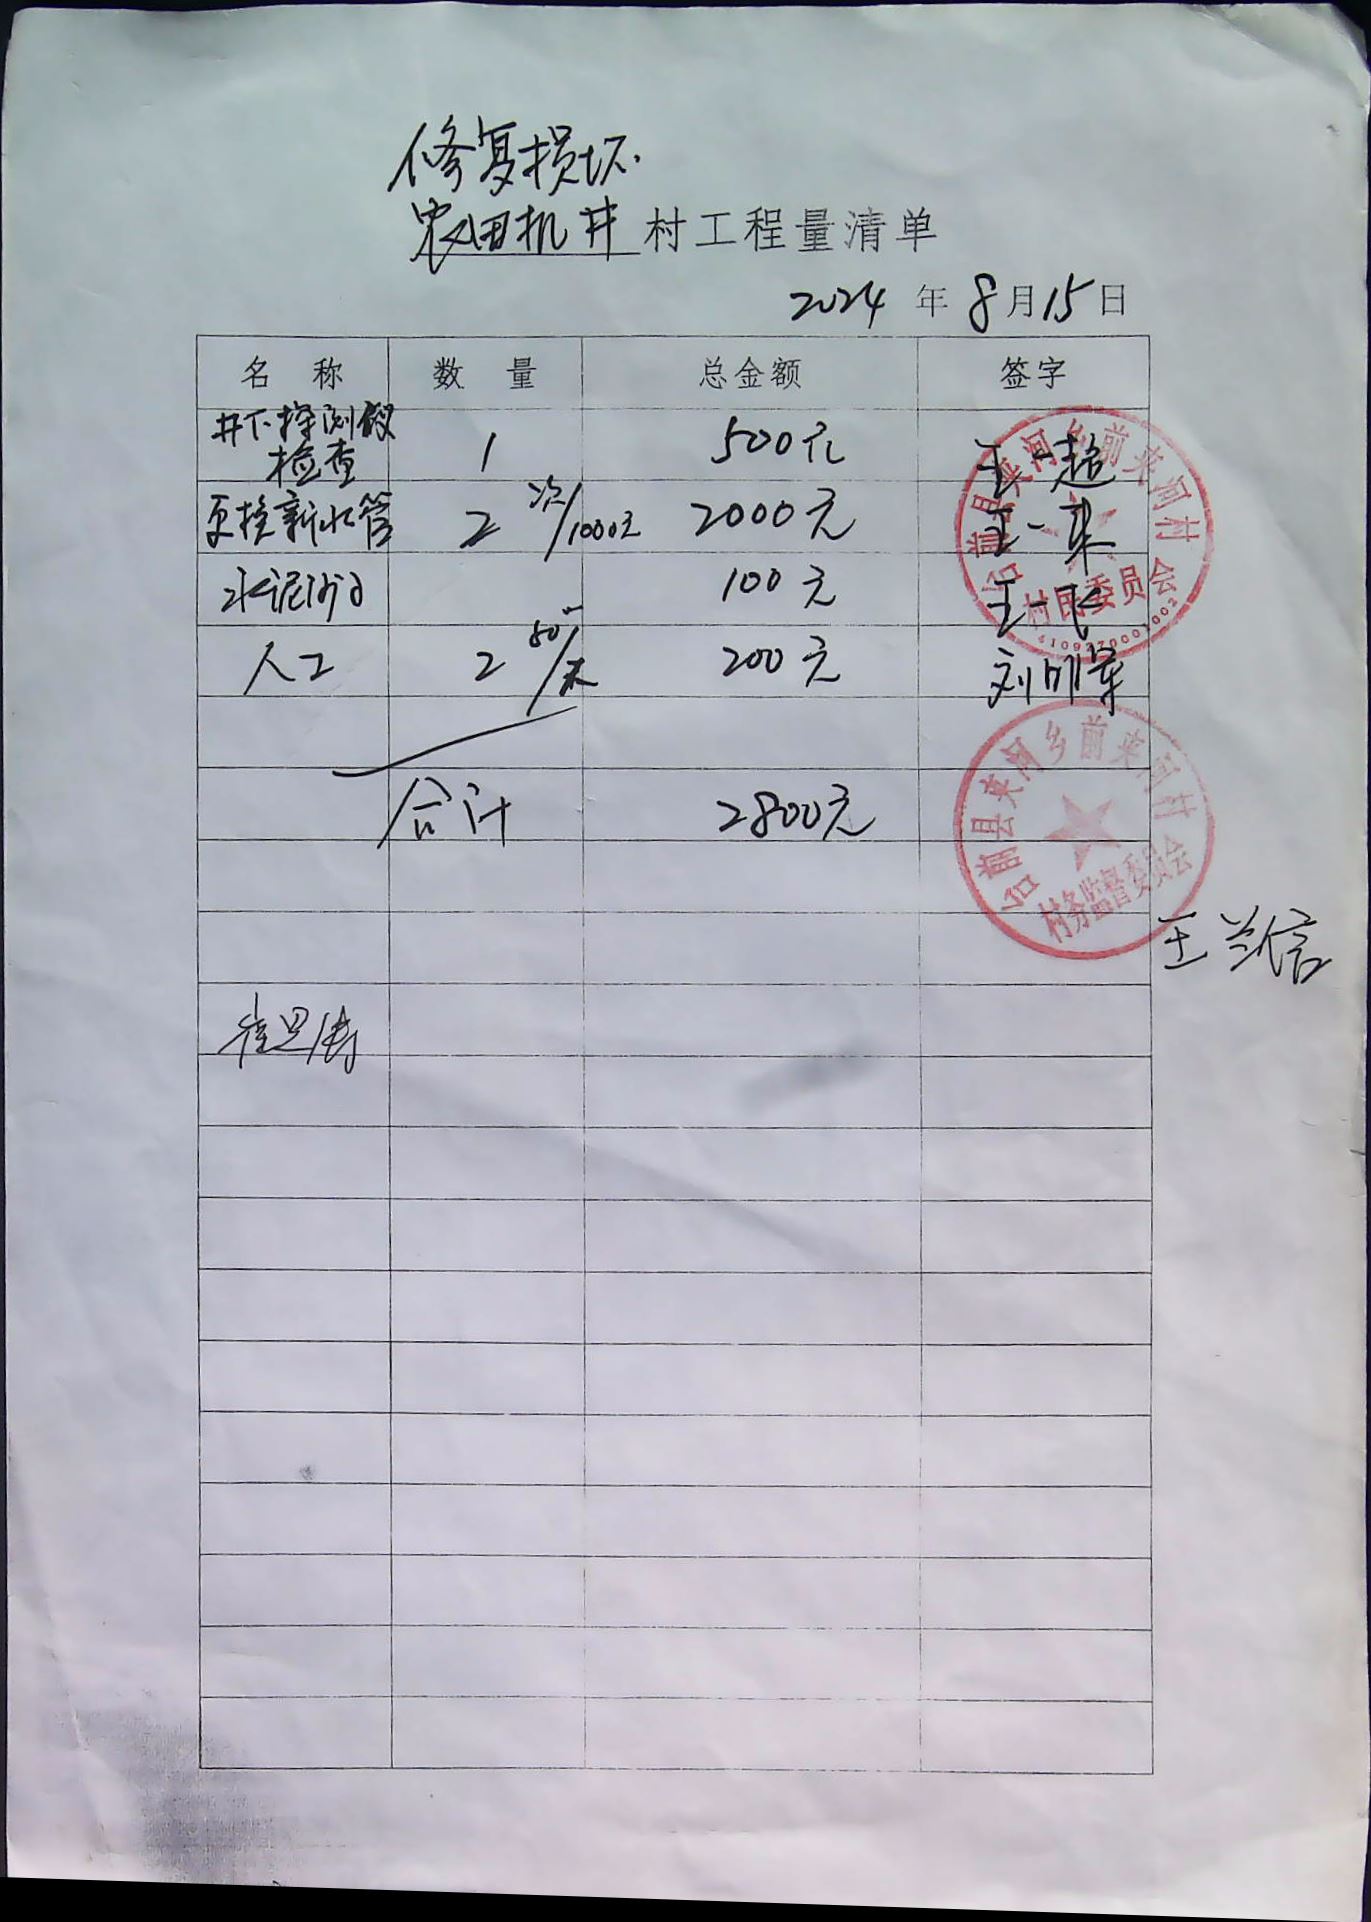 修复损坏
农田机井村工程量清单
2024年8月15日
名称 数量 总金额 签字
井下探测仪
检查 1 500元 王一超
更换新水管 2次/1000元 2000元 王一
水泥沙 100元 王一
人工 2 /天 200元 刘明军
合计 2800元
台前县夹河乡前夹河村
村民委员会
4109270001002
台前县夹河乡前夹河村
村务监督委员会
王兰信
崔思